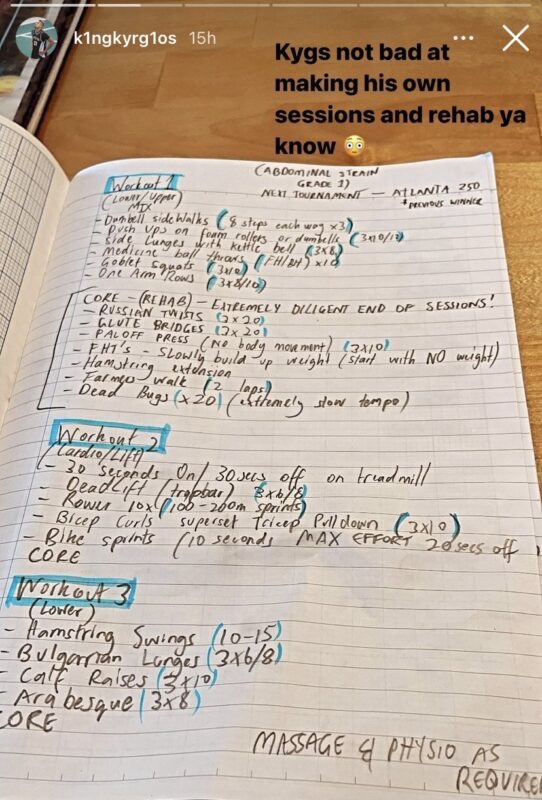 k1ngkyrg1os 15h
Kygs not bad at
making his own
sessions and rehab ya
know 😳
(ABDOMINAL STRAIN
GRADE 1)
Workout 1
NEXT TOURNAMENT - ATLANTA 250
*PREVIOUS WINNER
(Lower/Upper)
MIX
- Dumbell sidewalks (8 steps each way x3)
- Push ups on foam rollers or dumbells (3x10/12)
- Side Lunges with kettle bell (3x8)
- Medicine ball throws (FH/BH) x10
- Goblet Squats (3x10)
- One Arm Rows (3x8/10)
CORE - (REHAB) - EXTREMELY DILIGENT END OF SESSIONS!
- RUSSIAN TWISTS (3x20)
- GLUTE BRIDGES (3x20)
- PALOFF PRESS (No body movement) (3x10)
- FHT's - Slowly build up weight (start with NO weight)
- Hamstring extension
- Farmers walk (2 laps)
- Dead Bugs (x20) (extremely slow tempo)
Workout 2
(Cardio/Lift)
- 30 seconds On/30secs off on treadmill
- Deadlift (trapbar) 3x6/8
- Rower 10x (100-200m sprints)
- Bicep Curls superset Tricep Pulldown (3x10)
- Bike sprints (10 seconds MAX EFFORT 20secs off
CORE
Workout 3
(Lower)
- Hamstring Swings (10-15)
- Bulgarian Lunges (3x6/8)
- Calf Raises (3x10)
- Arabesque (3x8)
CORE
MASSAGE & PHYSIO AS
REQUIRED